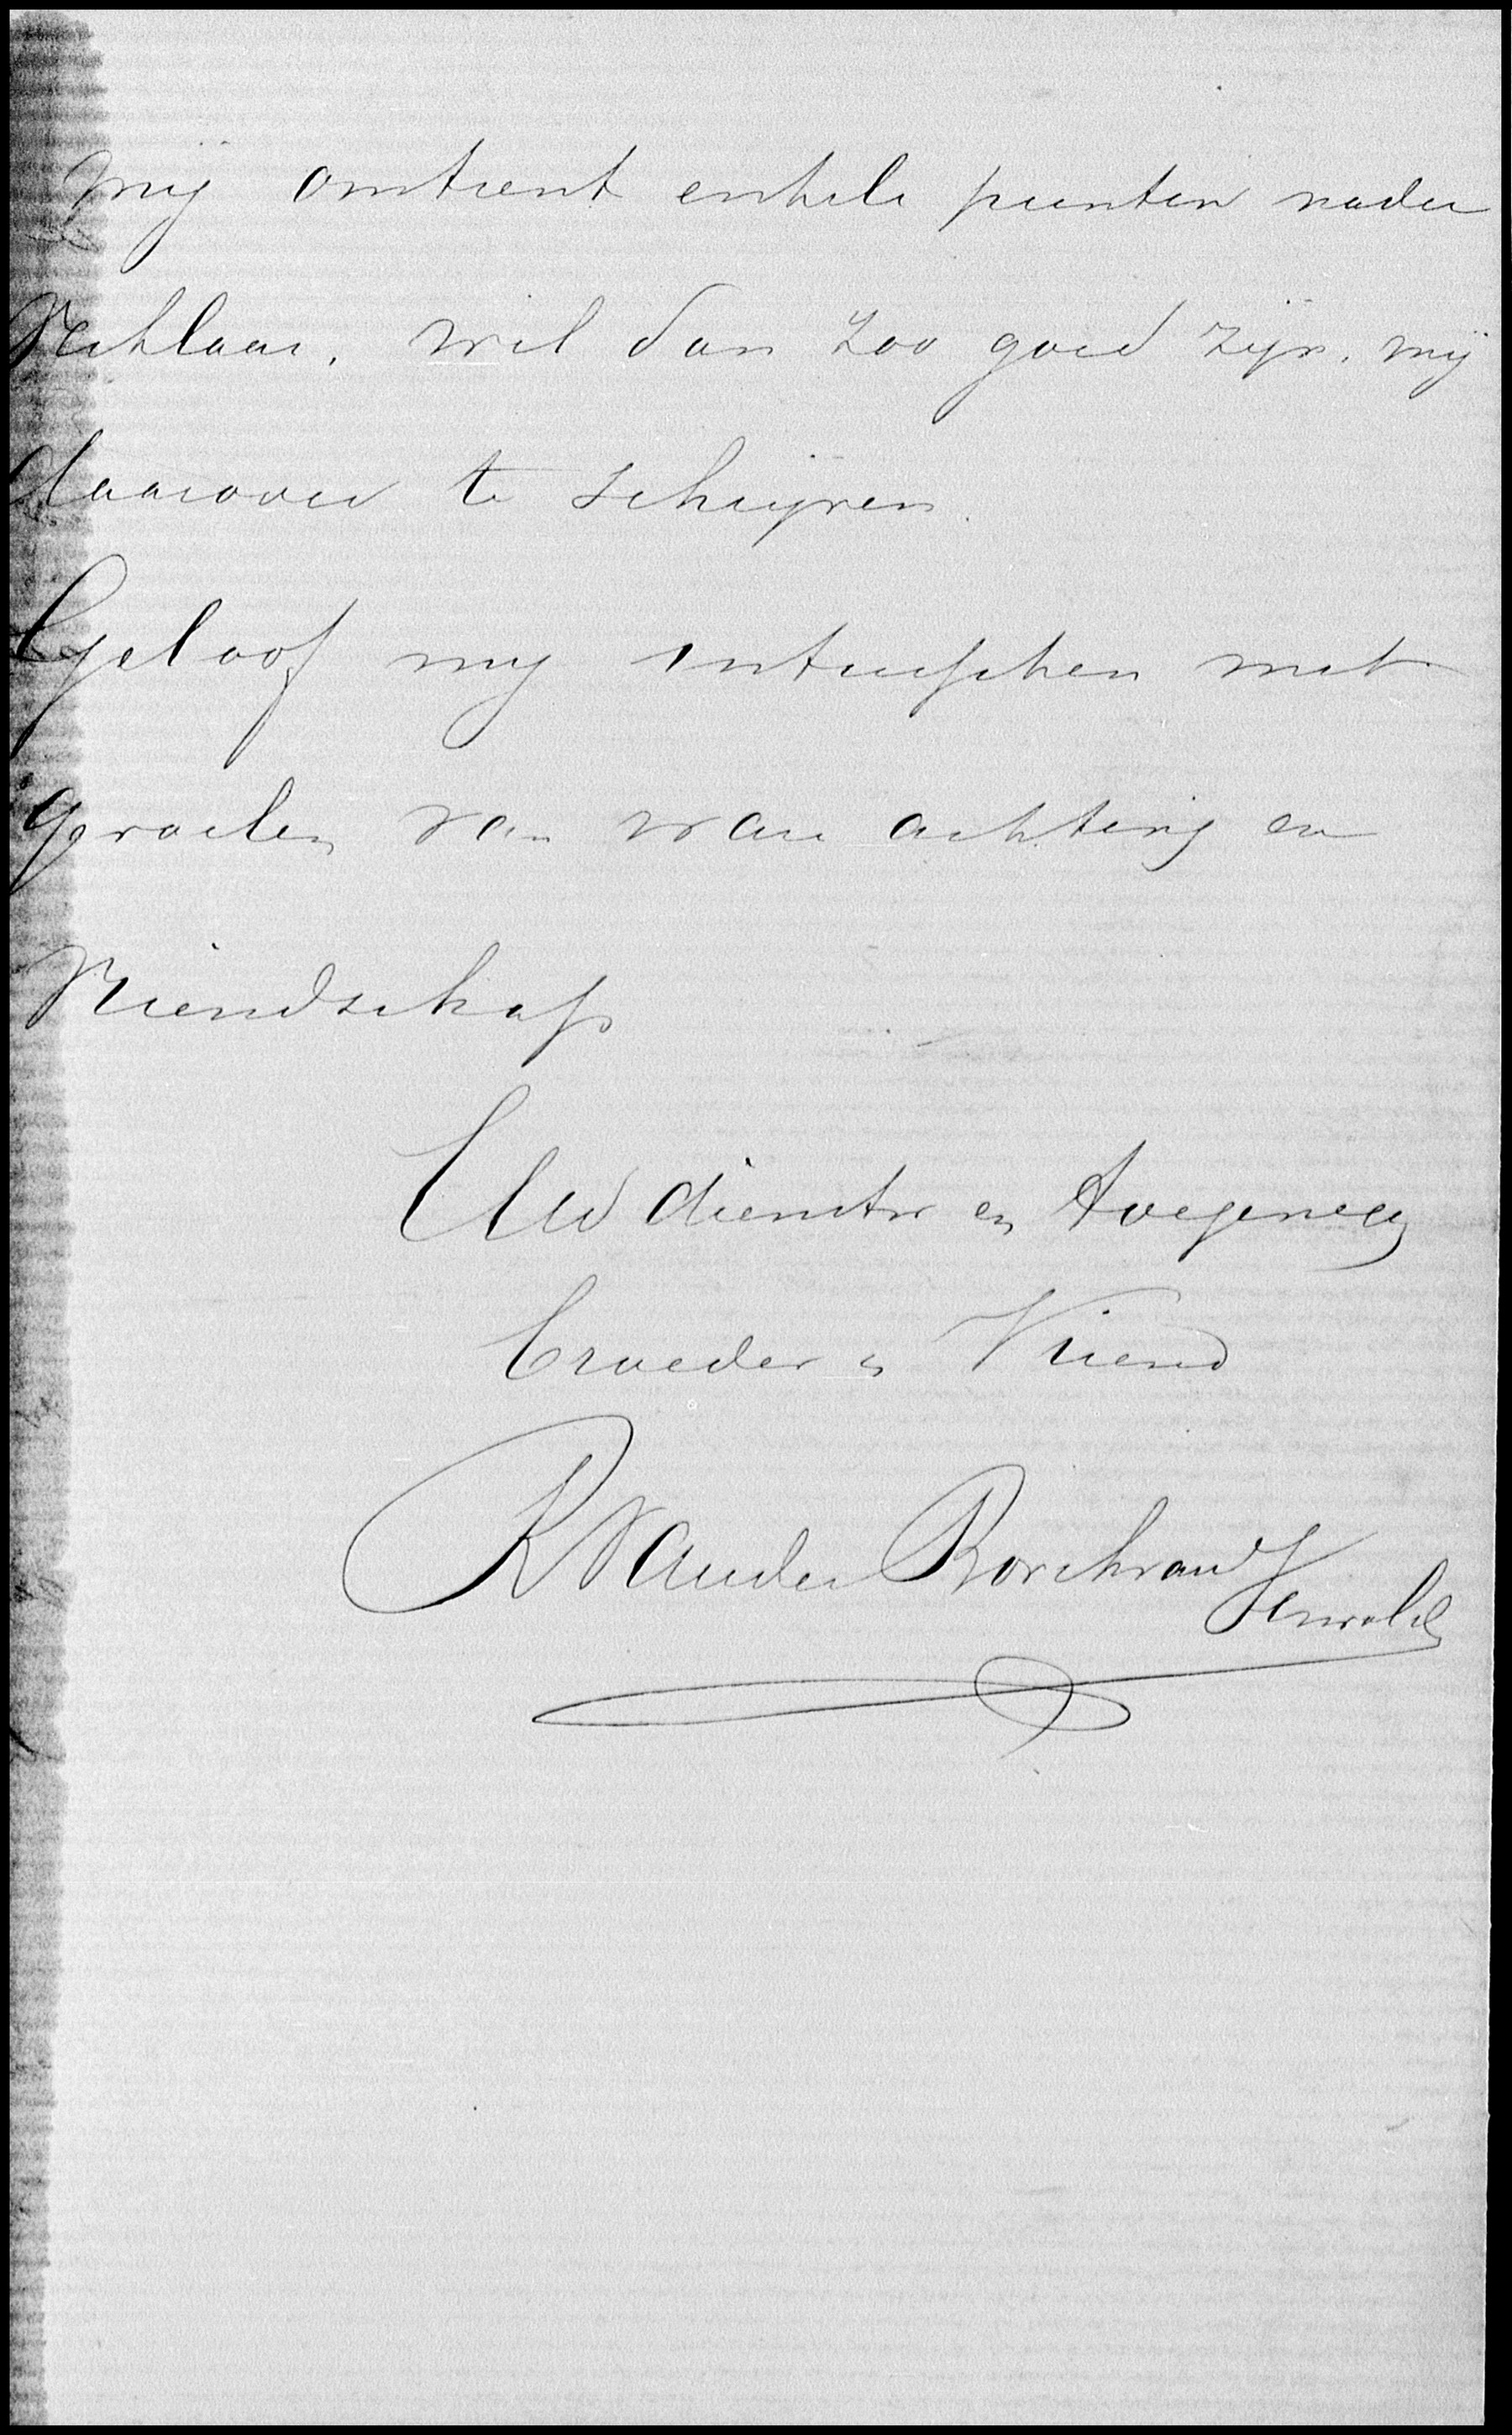 mij omtrent enkele punten nader
verklaar, wil dan zoo goed zijn, mij
daarover te schrijven.
Geloof mij intusschen met
gevoelen van ware achting en
Vriendschap
Uw dienstw en toegeneg
broeder en Vriend
R van der Borch van Verwolde